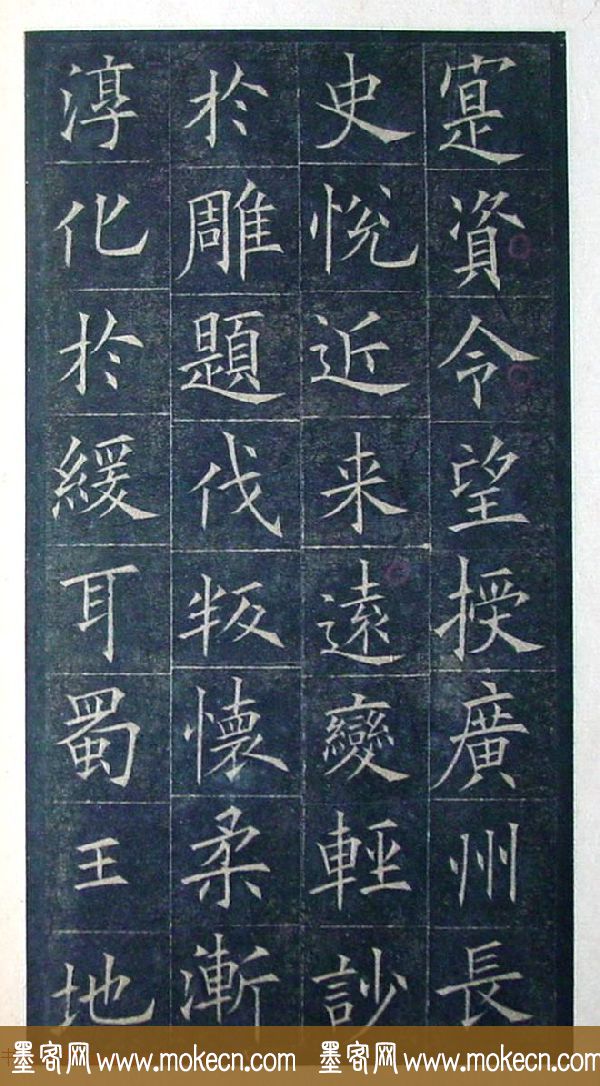 寔資令望授廣州長
史悅近来遠變輕訬
於雕題伐叛懷柔漸
淳化於緩耳蜀王地
墨客网 www.mokecn.com 墨客网 www.mokecn.com